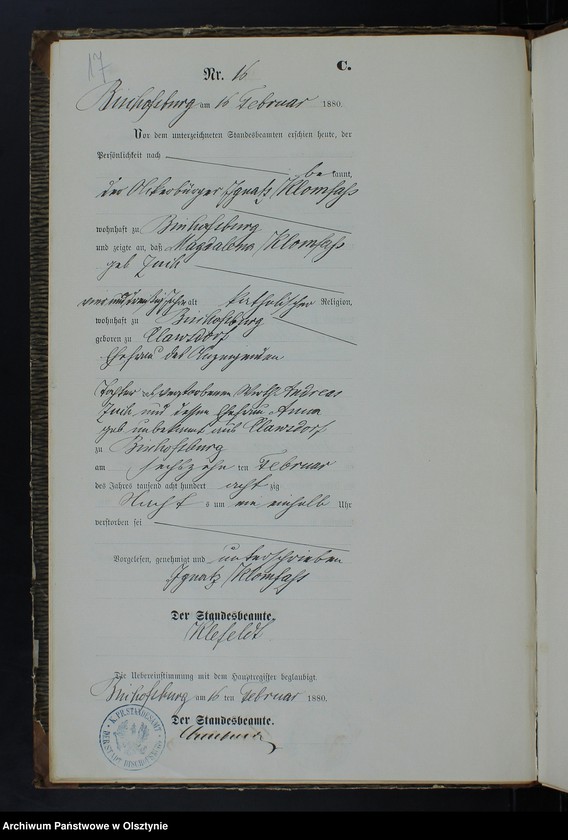 17
C.
Nr. 16
Bischofsburg am 16 Februar 1880.
Vor dem unterzeichneten Standesbeamten erschien heute, der
Persönlichkeit nach
be kannt,
der Ackerbürger Ignatz Klomfass
wohnhaft zu Bischofsburg
und zeigte an, daß Magdalena Klomfass
geb
alt katholischer Religion,
wohnhaft zu Bischofsburg
geboren zu Clawsdorf
Ehefrau des Anzeigenden
Tochter des verstorbenen Wirth Andreas
und dessen Ehefrau Anna
geb unbekannt aus Clawsdorf
zu Bischofsburg
am sechszehn ten Februar
des Jahres tausend acht hundert acht zig
Nacht s um ein einhalb Uhr
verstorben sei
Vorgelesen, genehmigt und unterschrieben
Ignatz Klomfass
Der Standesbeamte.
Klefeldt
Die Uebereinstimmung mit dem Hauptregister beglaubigt.
Bischofsburg am 16 ten Februar 1880.
Der Standesbeamte.
K. PR. STANDESAMT
DER STADT BISCHOFSBURG
Archiwum Państwowe w Olsztynie